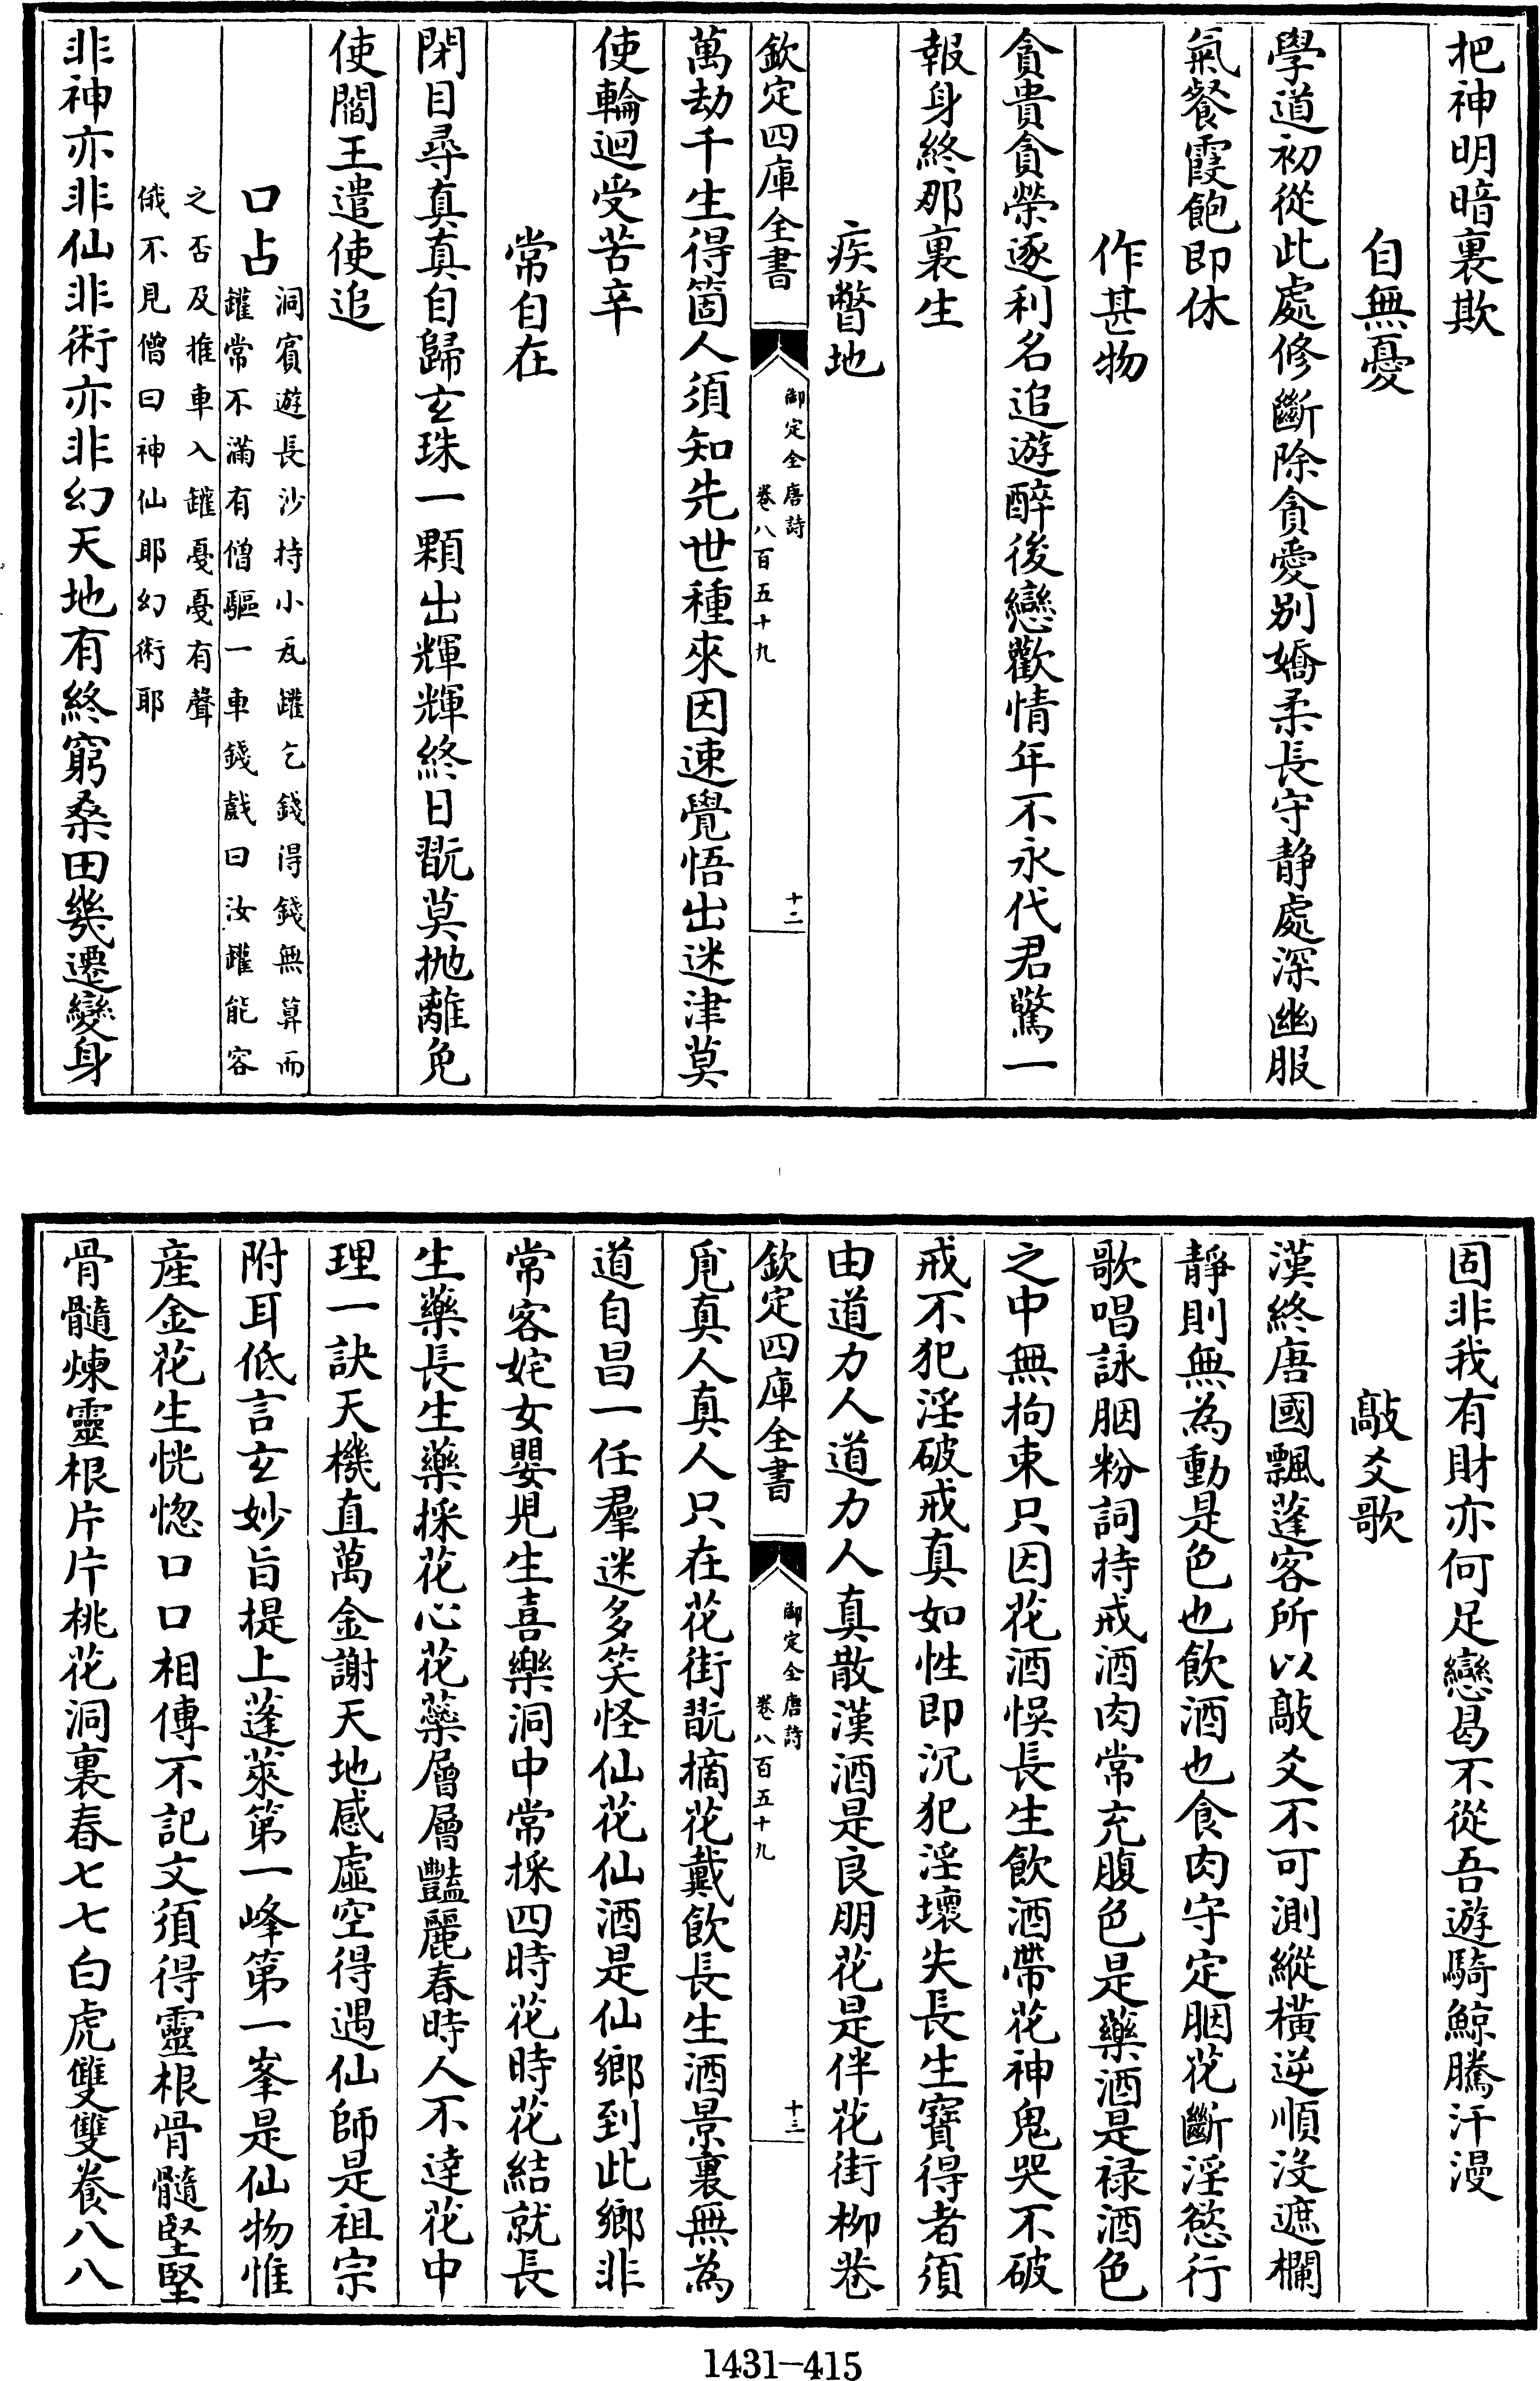 把神明暗裏欺
自無憂
學道初從此處修斷除貪愛別嬌柔長守静處深幽服
氣餐霞飽即休
作甚物
貪貴貪榮逐利名追遊醉後戀歡情年不永代君驚一
報身終那裏生
疾瞥地
欽定四庫全書
御定全唐詩
卷八百五十九
十二
萬劫千生得箇人須知先世種來因速覺悟出迷津莫
使輪迴受苦辛
常自在
閉目尋真真自歸玄珠一顆出輝輝終日翫莫抛離免
使閻王遣使追
口占
洞賓遊長沙持小瓦罐乞錢得錢無算而
罐常不滿有僧驅一車錢戲曰汝罐能容
之否及推車入罐戞戞有聲
俄不見僧曰神仙耶幻術耶
非神亦非仙非術亦非幻天地有終窮桑田幾遷變身
固非我有財亦何足戀曷不從吾遊騎鯨騰汗漫
敲爻歌
漢終唐國飄蓬客所以敲爻不可測縱橫逆順沒遮欄
靜則無為動是色也飲酒也食肉守定胭花斷淫慾行
歌唱詠胭粉詞持戒酒肉常充腹色是藥酒是禄酒色
之中無拘束只因花酒悞長生飲酒帶花神鬼哭不破
戒不犯淫破戒真如性即沉犯淫壞失長生寶得者須
由道力人道力人真散漢酒是良朋花是伴花街柳巷
欽定四庫全書
御定全唐詩
卷八百五十九
十三
覓真人真人只在花街翫摘花戴飲長生酒景裏無為
道自昌一任羣迷多笑怪仙花仙酒是仙鄉到此鄉非
常客姹女嬰兒生喜樂洞中常採四時花時花結就長
生藥長生藥採花心花蘂層層豔麗春時人不達花中
理一訣天機直萬金謝天地感虛空得遇仙師是祖宗
附耳低言玄妙旨提上蓬萊第一峰第一峯是仙物惟
産金花生恍惚口口相傳不記文須得靈根骨髓堅堅
骨髓煉靈根片片桃花洞裏春七七白虎雙雙養八八
1431-415